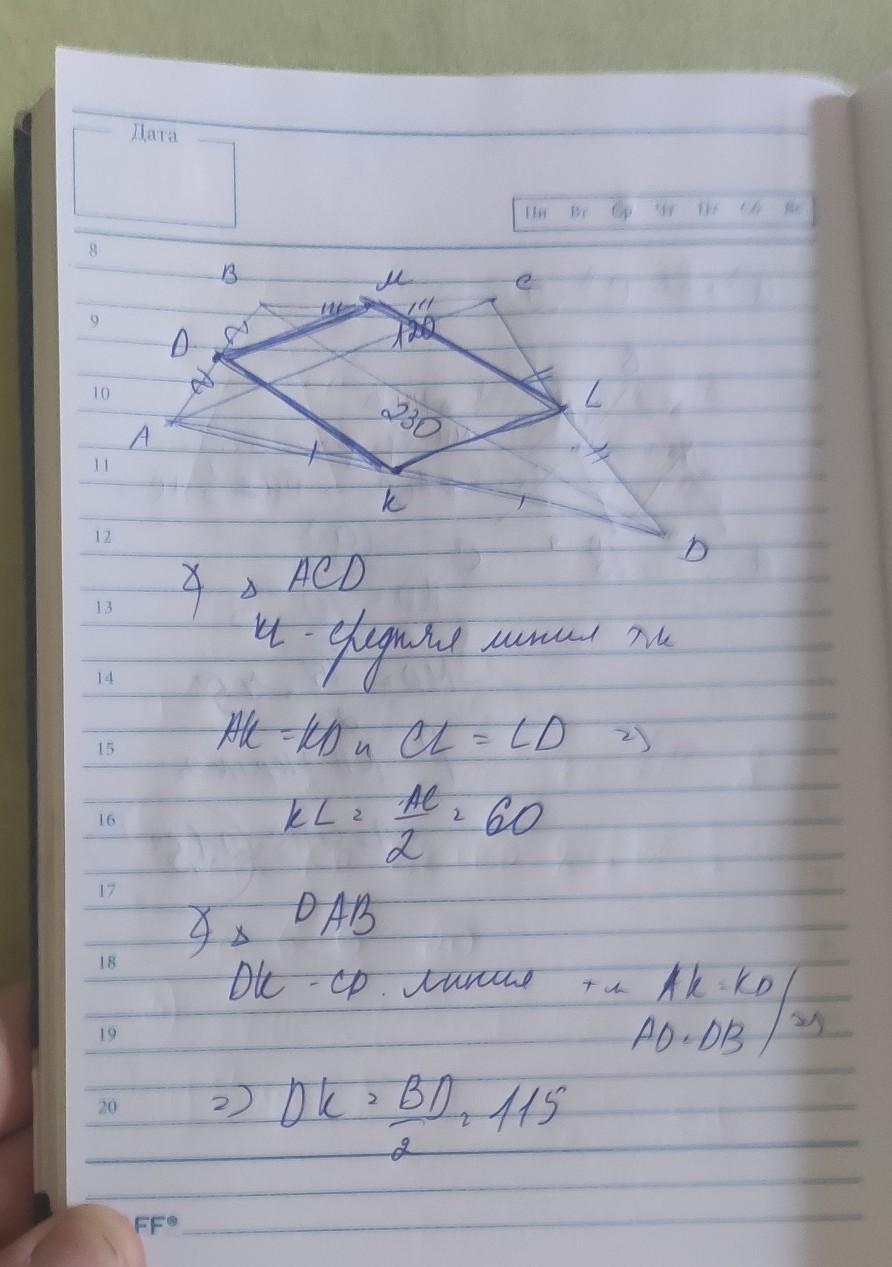 Дата
Пн Вт Ср Чт Пт Сб Вс
8
B M C
9
D 120
10
L
230
A
11
K
12
D
Δ ACD
13
KL - средняя линия т.к
14
AK = KD и CL = LD =>
15
KL = AC/2 = 60
16
17
Δ DAB
18
DK - ср. линия т.к AK = KD
19
AD = DB =>
20
=> DK = BD/2 = 115
FF®